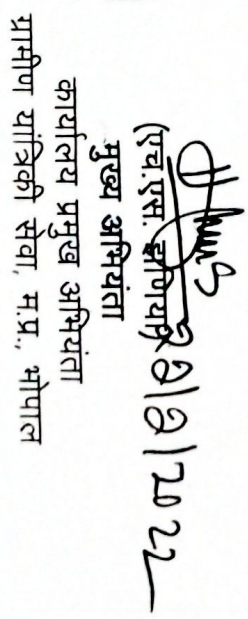 (एच.एस.
22/2/2022
मुख्य अभियंता
कार्यालय प्रमुख अभियंता
ग्रामीण यांत्रिकी सेवा, म.प्र., भोपाल